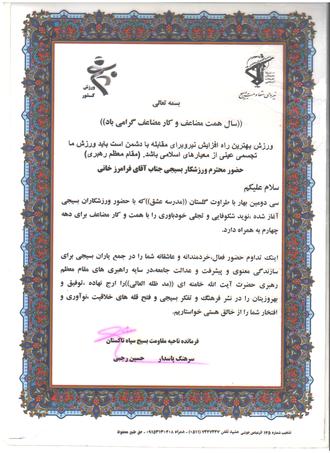 ورزش
کشور
بسمه تعالی
((سال همت مضاعف و کار مضاعف گرامی باد))
ورزش بهترین راه افزایش نیروبرای مقابله با دشمن است باید ورزش ما
تجسمی عینی از معیارهای اسلامی باشد. (مقام معظم رهبری)
حضور محترم ورزشکار بسیجی جناب آقای فرامرز خانی
سلام علیکم
سی دومین بهار با طراوت گلستان ((مدرسه عشق))که با حضور ورزشکاران بسیجی
آغاز شده ،نوید شکوفایی و تجلی خودباوری را با همت و کار مضاعف برای دهه
چهارم به همراه دارد.
اینک تداوم حضور فعال،خردمندانه و عاشقانه شما را در جمع یاران بسیجی برای
سازندگی معنوی و پیشرفت و عدالت جامعه،در سایه رهبری های مقام معظم
رهبری حضرت آیت الله خامنه ای ((مد ظله العالی))را ارج نهاده ،توفیق و
بهروزیتان را در نشر فرهنگ و تفکر بسیجی و فتح قله های خلاقیت ،نوآوری و
افتخار شما را از خالق هستی خواستاریم.
فرمانده ناحیه مقاومت بسیج سپاه تاکستان
سرهنگ پاسدار حسین رجبی